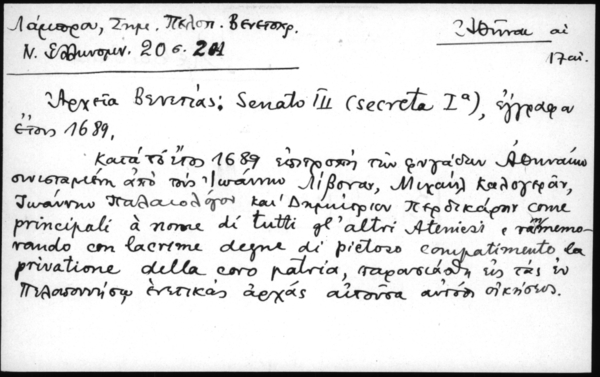 Λάμπρου, Σημ. Πελοπ. Βενετοκρ.
Ν. Ἑλληνομν. 20 σ. 201
Ἀθῆναι αἱ
17 αἰ.
Ἀρχεῖα Βενετίας: Senato III (secreta Iα), ἔγγραφα
ἔτους 1689.
Κατὰ τὸ ἔτος 1689 ἐπιτροπὴ τῶν φυγάδων Ἀθηναίων
συνισταμένη ἀπὸ τοὺς Ἰωάννην Λίβοναν, Μιχαὴλ Καλογερᾶν,
Ἰωάννην Παλαιολόγον καὶ Δημήτριον Περδικάρην come
principali à nome di tutti gl'altri Ateniesi e rammemo-
rando con lacrime degne di pietoso compatimento la
privatione della loro patria, παρουσιάσθη εἰς τὰς ἐν
Πελοποννήσῳ ἑνετικὰς ἀρχὰς αἰτοῦσα οἰκήσεως.